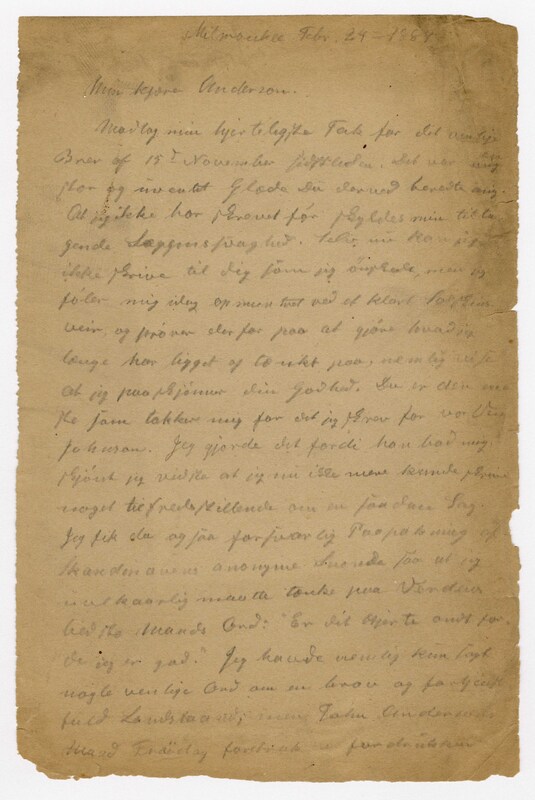 Milwaukee Febr. 24 - 188
Min kjære Anderson.
Modtag min hjerteligste Tak for det venlige
Brev af 15de November sidstleden. Det var
stor og uventet Glæde Du derved beredte mig.
At jeg ikke har skrevet før skyldes min tilta
gende Lægems svaghed. Selv nu kan jeg
ikke skrive til dig som jeg önskede, men jeg
föler mig idag opmuntret ved et klart Solskins
veir, og pröver derfor paa at gjöre hvad jeg
længe har ligget og tænkt paa, nemlig vise
at jeg paaskjönner din Godhed. Du er den
ste som takker mig for det jeg skrev for vor Ven
Johnson. Jeg gjorde det fordi han bad mig,
skjönt jeg vidste at jeg nu ikke mere kunde skrive
noget tilfredsstillende om en saadan Sag.
Jeg fik da ogsaa forsvarlig Paapakning af
Skandinavens anonyme saa at jeg
uvilkaarlig maatte tænke paa Verdens
bedste Mands Ord: "Er dit Hjerte ondt for
di jeg er god?" Jeg havde nemlig kun sagt
nogle venlige Ord om en brav og
fuld Landsmand; men John Andersons
Mand